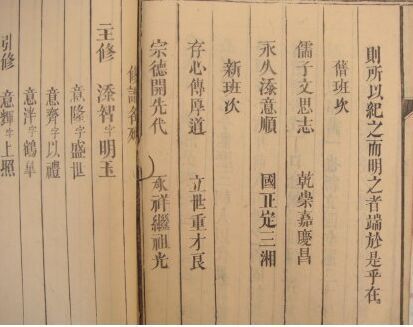 則所以紀之而明之者端於是乎在
舊班次
儒子文思志 乾榮嘉慶昌
永久添意順 國正定三湘
新班次
存心傳厚道 立世重才良
宗德開先代 承祥繼祖光
修譜名列
主修 添智字明玉
意隆字盛世
意齊字以禮
意泮字鶴皐
引修 意輝字上照